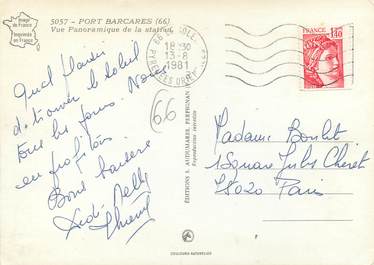 Image de France
Imprimée en France
5057 - PORT BARCARES (66)
Vue Panoramique de la station
Quel plaisir
de trouver le soleil
tous les jours. Nous
en profitons
Bons baisers
Dédé Nelly
66
18 30
13-8
1981
PYRENEES ORIE
FRANCE
1,40
ÉDITIONS S. AUDUMARES, PERPIGNAN
Reproduction interdite
Madame Boulet
1 Square Jules Cheret
75020 Paris
COULEURS NATURELLES